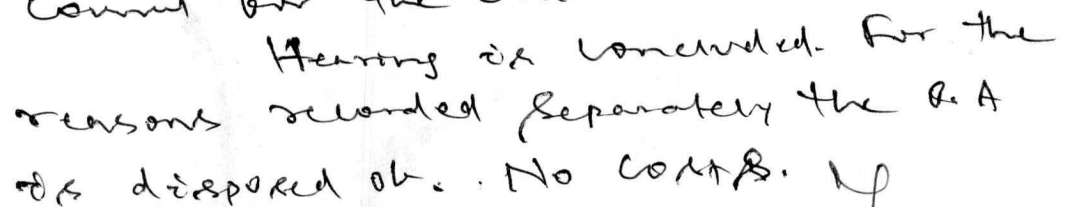 Hearing is concluded. For the
reasons recorded separately the R.A
is disposed of.. No costs.